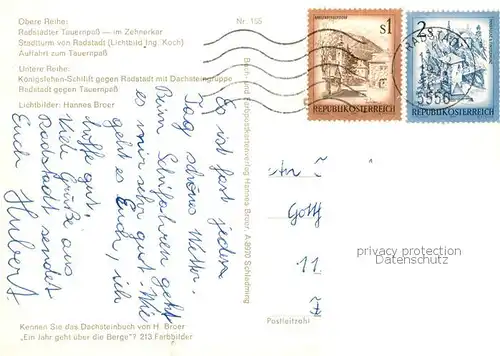 Obere Reihe:
Radstädter Tauernpaß — im Zehnerkar
Stadtturm von Radstadt (Lichtbild Ing. Koch)
Auffahrt zum Tauernpaß
Untere Reihe:
Königslehen-Schilift gegen Radstadt mit Dachsteingruppe
Radstadt gegen Tauernpaß
Lichtbilder: Hannes Broer
Nr. 155
Buch- und Kunstpostkartenverlag Hannes Broer, A-8970 Schladming
Es ist fast jeden
Tag schönes Wetter.
Beim Schifahren geht
es mir sehr gut. Wie
geht es Euch, ich
hoffe gut.
Viele Grüße aus
Radstadt sendet
Euch Hubert.
s1
REPUBLIK ÖSTERREICH
2s
REPUBLIK ÖSTERREICH
RADSTADT
5550
11
Postleitzahl
privacy protection
Datenschutz
Kennen Sie das Dachsteinbuch von H. Broer
„Ein Jahr geht über die Berge"? 213 Farbbilder